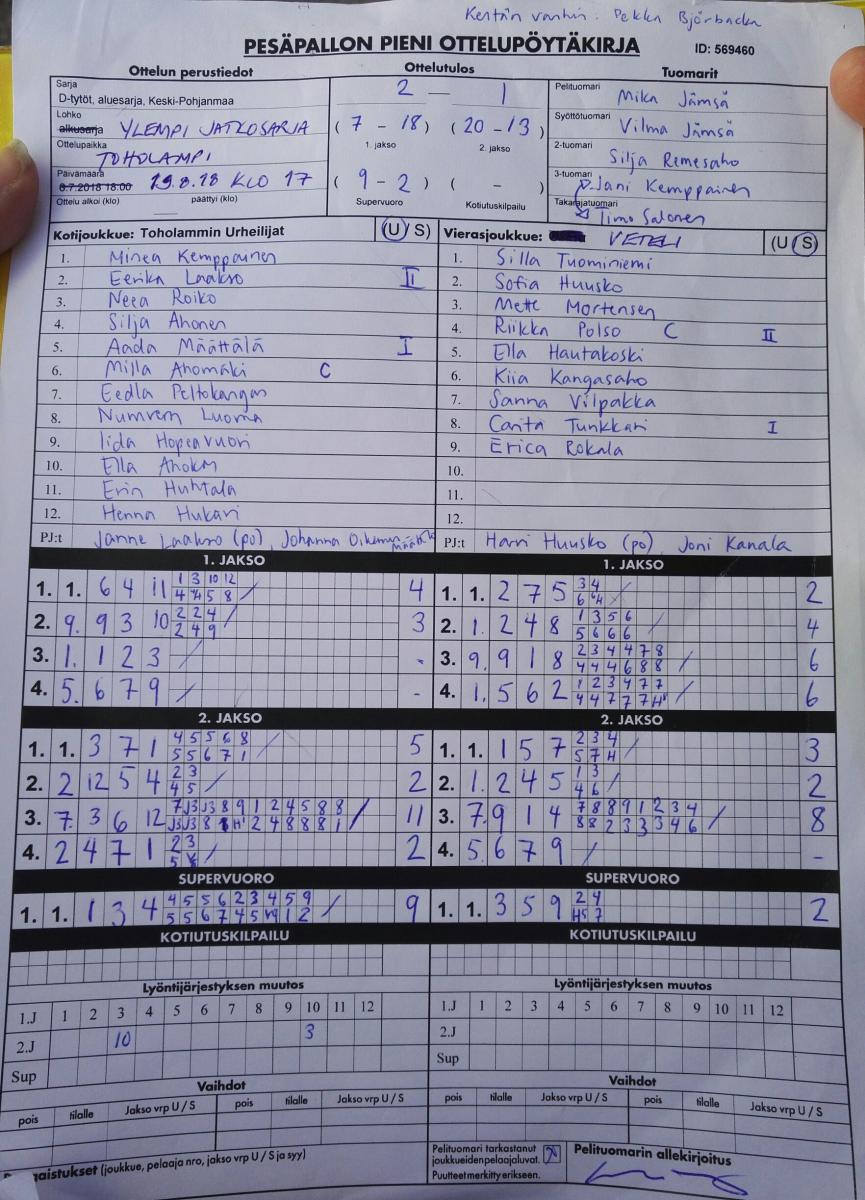 Kentän vanhin: Pekka Björbacka
PESÄPALLON PIENI OTTELUPÖYTÄKIRJA ID: 569460
Ottelun perustiedot Ottelutulos Tuomarit
Sarja
D-tytöt, aluesarja, Keski-Pohjanmaa
2 — 1
Pelituomari Mika Jämsä
Lohko
alkusarja YLEMPI JATKOSARJA
(7 - 18) (20 - 13)
1. jakso 2. jakso
Syöttötuomari Vilma Jämsä
Ottelupaikka
TOHOLAMPI
2-tuomari Silja Remesaho
Päivämäärä
8.7.2018 18:00 19.8.18 KLO 17
(9 - 2) ( - )
Supervuoro Kotiutuskilpailu
3-tuomari Jani Kemppainen
Ottelu alkoi (klo) päättyi (klo)
Takarajatuomari Timo Salonen
Kotijoukkue: Toholammin Urheilijat (U/S) Vierasjoukkue: VETELI (U/S)
1. Minea Kemppainen 1. Silla Tuominiemi
2. Eerika Laakso II 2. Sofia Huusko
3. Neea Roiko 3. Mette Mortensen
4. Silja Ahonen 4. Riikka Polso C II
5. Aada Määttälä I 5. Ella Hautakoski
6. Milla Ahomäki C 6. Kiia Kangasaho
7. Eedla Peltokangas 7. Sanna Vilpakka
8. Luoma 8. Carita Tunkkari I
9. Iida Hopeavuori 9. Erica Rokala
10. Ella 10.
11. Erin Huhtala 11.
12. Henna Hukari 12.
PJ:t Janne Laakso (po), Johanna PJ:t Harri Huusko (po) Joni Kanala
1. JAKSO 1. JAKSO
1. 1. 6 4 11 1 3 10 12 / 4 1. 1. 2 7 5 3 4 / 2
2. 9. 9 3 10 2 2 4 / 3 2. 1. 2 4 8 1 3 5 6 / 4
2 4 9 5 6 6 6
3. 1. 1 2 3 / - 3. 9. 9 1 8 2 3 4 4 7 8 / 6
4 4 4 6 8 8
4. 5. 6 7 9 / - 4. 1. 5 6 2 1 2 3 4 7 7 / 6
4 4 7 7 7 H
2. JAKSO 2. JAKSO
1. 1. 3 7 1 4 5 5 6 8 / 5 1. 1. 1 5 7 2 3 4 / 3
5 5 6 7 1 5 7 H
2. 2 12 5 4 2 3 / 2 2. 1. 2 4 5 1 3 / 2
4 5 4 6
3. 7. 3 6 12 7 J3 J3 8 9 1 2 4 5 8 8 / 11 3. 7. 9 1 4 7 8 8 9 1 2 3 4 / 8
8 8 2 3 3 3 4 6
4. 2 4 7 1 2 3 / 2 4. 5 6 7 9 / -
SUPERVUORO SUPERVUORO
1. 1. 1 3 4 4 5 5 6 2 3 4 5 9 / 9 1. 1. 3 5 9 2 4 2
KOTIUTUSKILPAILU KOTIUTUSKILPAILU
Lyöntijärjestyksen muutos Lyöntijärjestyksen muutos
1.J 1 2 3 4 5 6 7 8 9 10 11 12 1.J 1 2 3 4 5 6 7 8 9 10 11 12
2.J 10 3 2.J
Sup Sup
Vaihdot Vaihdot
pois tilalle Jakso vrp U / S pois tilalle Jakso vrp U / S pois tilalle Jakso vrp U / S pois tilalle Jakso vrp U / S
(joukkue, pelaaja nro, jakso vrp U / S ja syy)
Pelituomari tarkastanut
joukkueidenpelaajaluvat.
Puutteet merkitty erikseen.
Pelituomarin allekirjoitus